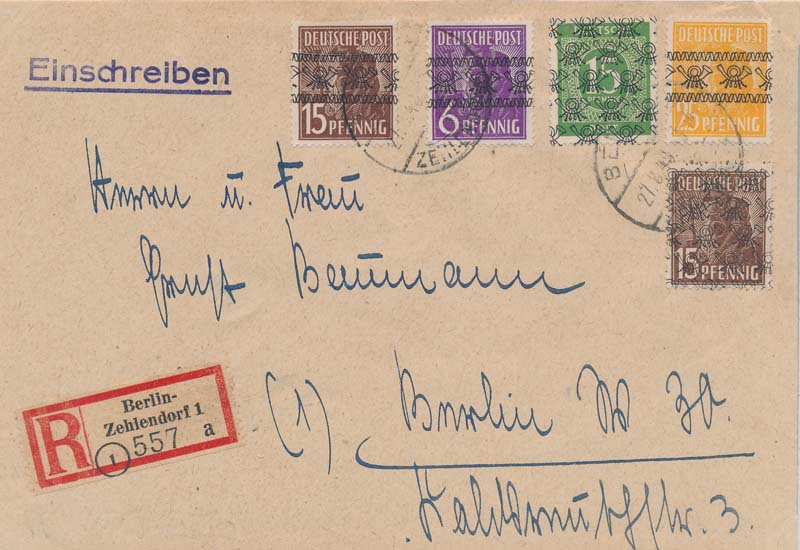 Einschreiben
DEUTSCHE POST
15 PFENNIG
DEUTSCHE POST
6 PFENNIG
15
DEUTSCHE POST
25 PFENNIG
DEUTSCHE POST
15 PFENNIG
ZEHL
27.8
Herrn u. Frau
Ernst Baumann
R
Berlin-
Zehlendorf 1
1 557 a
(1) Berlin W 30.
3.